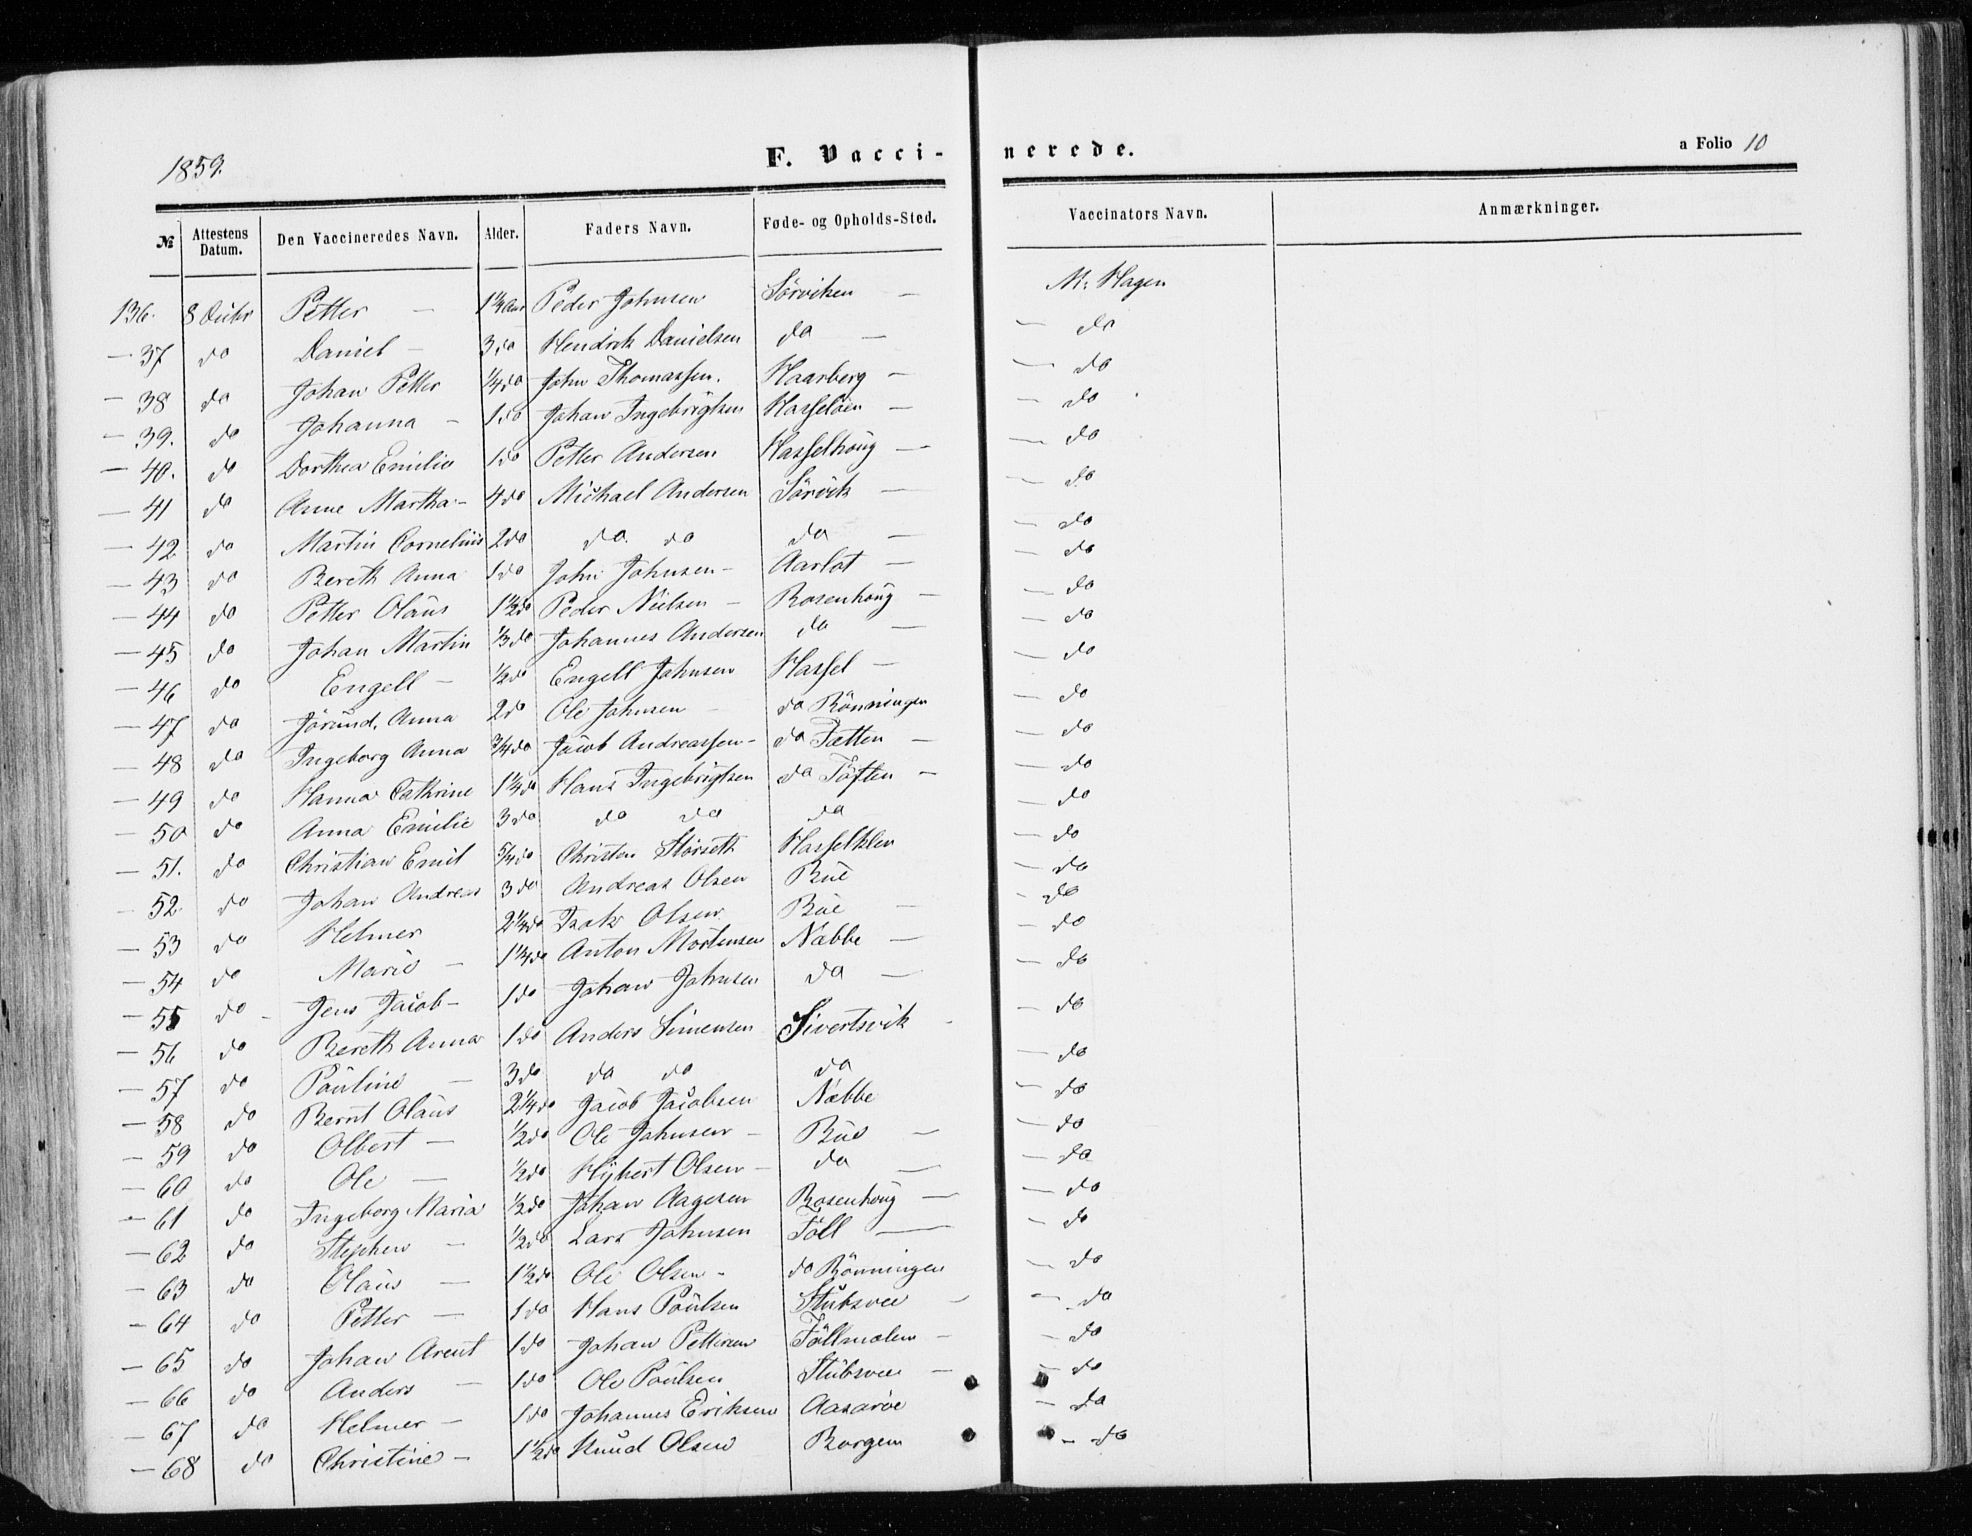 1859.
F. Vacci-nerede.
a Folio 10
№ Attestens Datum. Den Vaccineredes Navn. Alder. Faders Navn. Føde- og Opholds-Sted. Vaccinators Navn. Anmærkninger.
136. 8 Petter — 1 1/4 Aar Peder Johnsen Sörviken — M: Hagen
— 37 do Daniel — 3 do Hendrik Danielsen do — — do
— 38 do Johan Petter 1/4 do John Thomassen. Haarberg — — do
— 39. do Johanna — 1 do Johan Ingebrigtsen Hasseløen — — do
— 40. do Dorthea Emilie 1 do Petter Andersen Hasselhöug — — do
— 41 do Anne Martha — 4 do Michael Andersen Sörvik — — do
— 42 do Martin Cornelius 2 do do do do — — do
— 43 do Bereth Anna 1 do John Johnsen — Aarlot — — do
— 44 do Petter Olaüs 1 1/2 do Peder Nielsen — Rosenhöug — — do
— 45 do Johan Martin 1/3 do Johannes Andersen do — — do
— 46 do Engell — 1/2 do Engell Johnsen Hassel — — do
— 47 do Jörund. Anna 2 do Ole Johnsen — do Rönningen — do
— 48 do Ingeborg Anna 3/4 do Jacob Andreassen — do Tætten — — do
— 49 do Hanna Cathrine 1 1/4 do Hans Ingebrigtsen do Töften — — do
— 50 do Anna Emilie 3 do do do do — do
— 51. do Christian Emil 5/4 do Christen Störseth — do
— 52 do Johan Andreas 3 do Andreas Olsen Büe — do
— 53 do Helmer 2 1/4 do Isak Olsen Büe — — do
— 54 do Marie — 1 1/4 do Anton Mortensen Næbbe — — do
— 55 do Jens Jacob — 1 do Johan Johnsen do — — do
— 56 do Bereth Anna 1 do Anders Simensen Sivertsvik — do
— 57 do Pauline — 3 do do do do — do
— 58 do Bernt Olaüs 2 1/4 do Jacob Jacobsen Næbbe — do
— 59 do Olbert — 1/2 do Ole Johnsen — Büe — — do
— 60 do Ole — 1/2 do Olsen — do — — do
— 61 do Ingeborg Maria 1/2 do Johan Aagesen Rosenhöug — — do
— 62 do Stephen — 1/2 do Lars Johnsen Föll — — do
— 63 do Olaüs — 1 1/2 do Ole Olsen — do Rönningen — do
— 64 do Petter — 1 do Hans Poulsen Stubsvee — — do
— 65 do Johan Arent 1 do Johan Pettersen Föllmoelen — — do
— 66 do Anders — 1 do Ole Poulsen Stubsvee — — do
— 67 do Helmer — 1 do Johannes Eriksen Aasaröe — do
— 68 do Christine — 1 1/2 do Knud Olsen Borgen — do